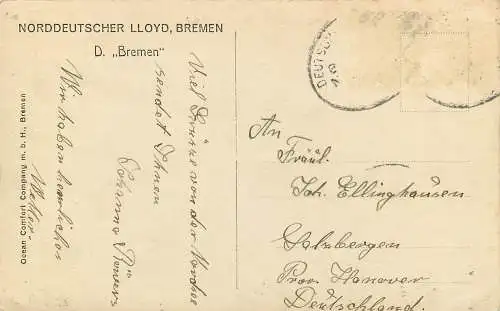 NORDDEUTSCHER LLOYD, BREMEN
D. „Bremen"
Ocean Comfort Company m. b. H., Bremen
Viel Grüsse von der Nordsee
sendet Ihnen
Johanna
Wir haben herrliches
Wetter.
DEUTSCH
An
Fräul.
Joh. Ellinghausen
Salzbergen
Prov. Hanover
Deutschland.